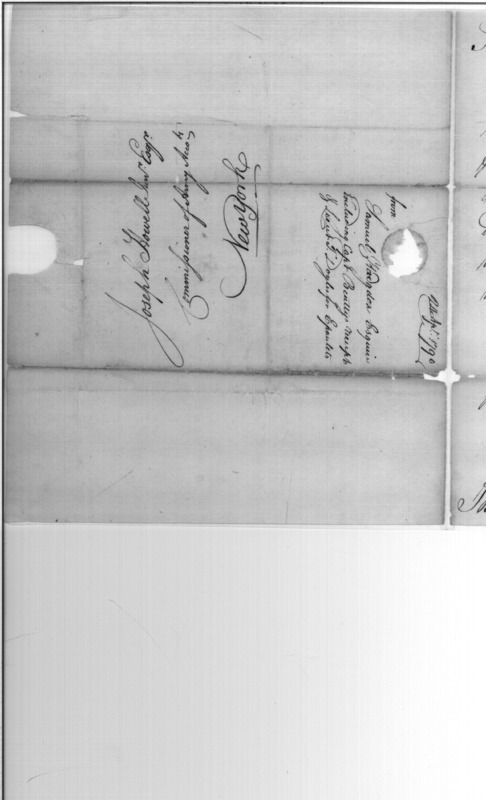 Joseph Howell Junr. Esqr.
Commissioner of Army Accots
New York
12th Apl. 1790
from
Samuel Hodgdon Esquire
Including Capt. Bentleys receipts
& Lieut. Doyles for Epaulets